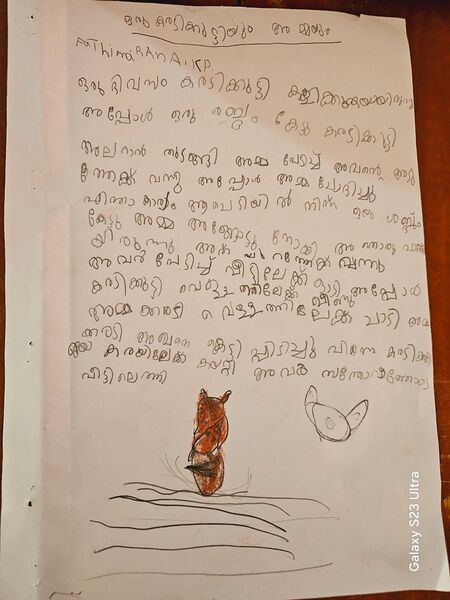 ഒരു കരടിക്കുട്ടിയും അമ്മയും
AthiraRANA.K.P
ഒരു ദിവസം കരടിക്കുട്ടി കളിക്കുകയായിരുന്നു
അപ്പോൾ ഒരു ശബ്ദം കേട്ടു കരടിക്കുട്ടി
അലറാൻ തുടങ്ങി അമ്മ പേടിച്ച് അവൻ്റെ അടു
ത്തേക്ക് വന്നു അപ്പോൾ അമ്മ ചോദിച്ചു
എന്താ കാര്യം ആ ചെടിയിൽ നിന്ന് ഒരു ശബ്ദം
കേട്ടു അമ്മ അങ്ങോട്ടു നോക്കി അതൊരു
യിരുന്നു അത് പുറത്തേക്ക് വന്നു
അവൻ പേടിച്ച് വീട്ടിലേക്ക് ഓടി അപ്പോൾ
കരടിക്കുട്ടി വെള്ളത്തിലേക്ക് വീണു
അമ്മക്കരടി വെള്ളത്തിലേക്ക് ചാടി അമ്മ
ക്കരടി അവനെ കെട്ടി പ്പിടിച്ചു പിന്നെ കരടിക്കു
കരയിലേക്ക് കയറ്റി അവർ സന്തോഷത്തോടെ
വീട്ടിലെത്തി
Galaxy S23 Ultra